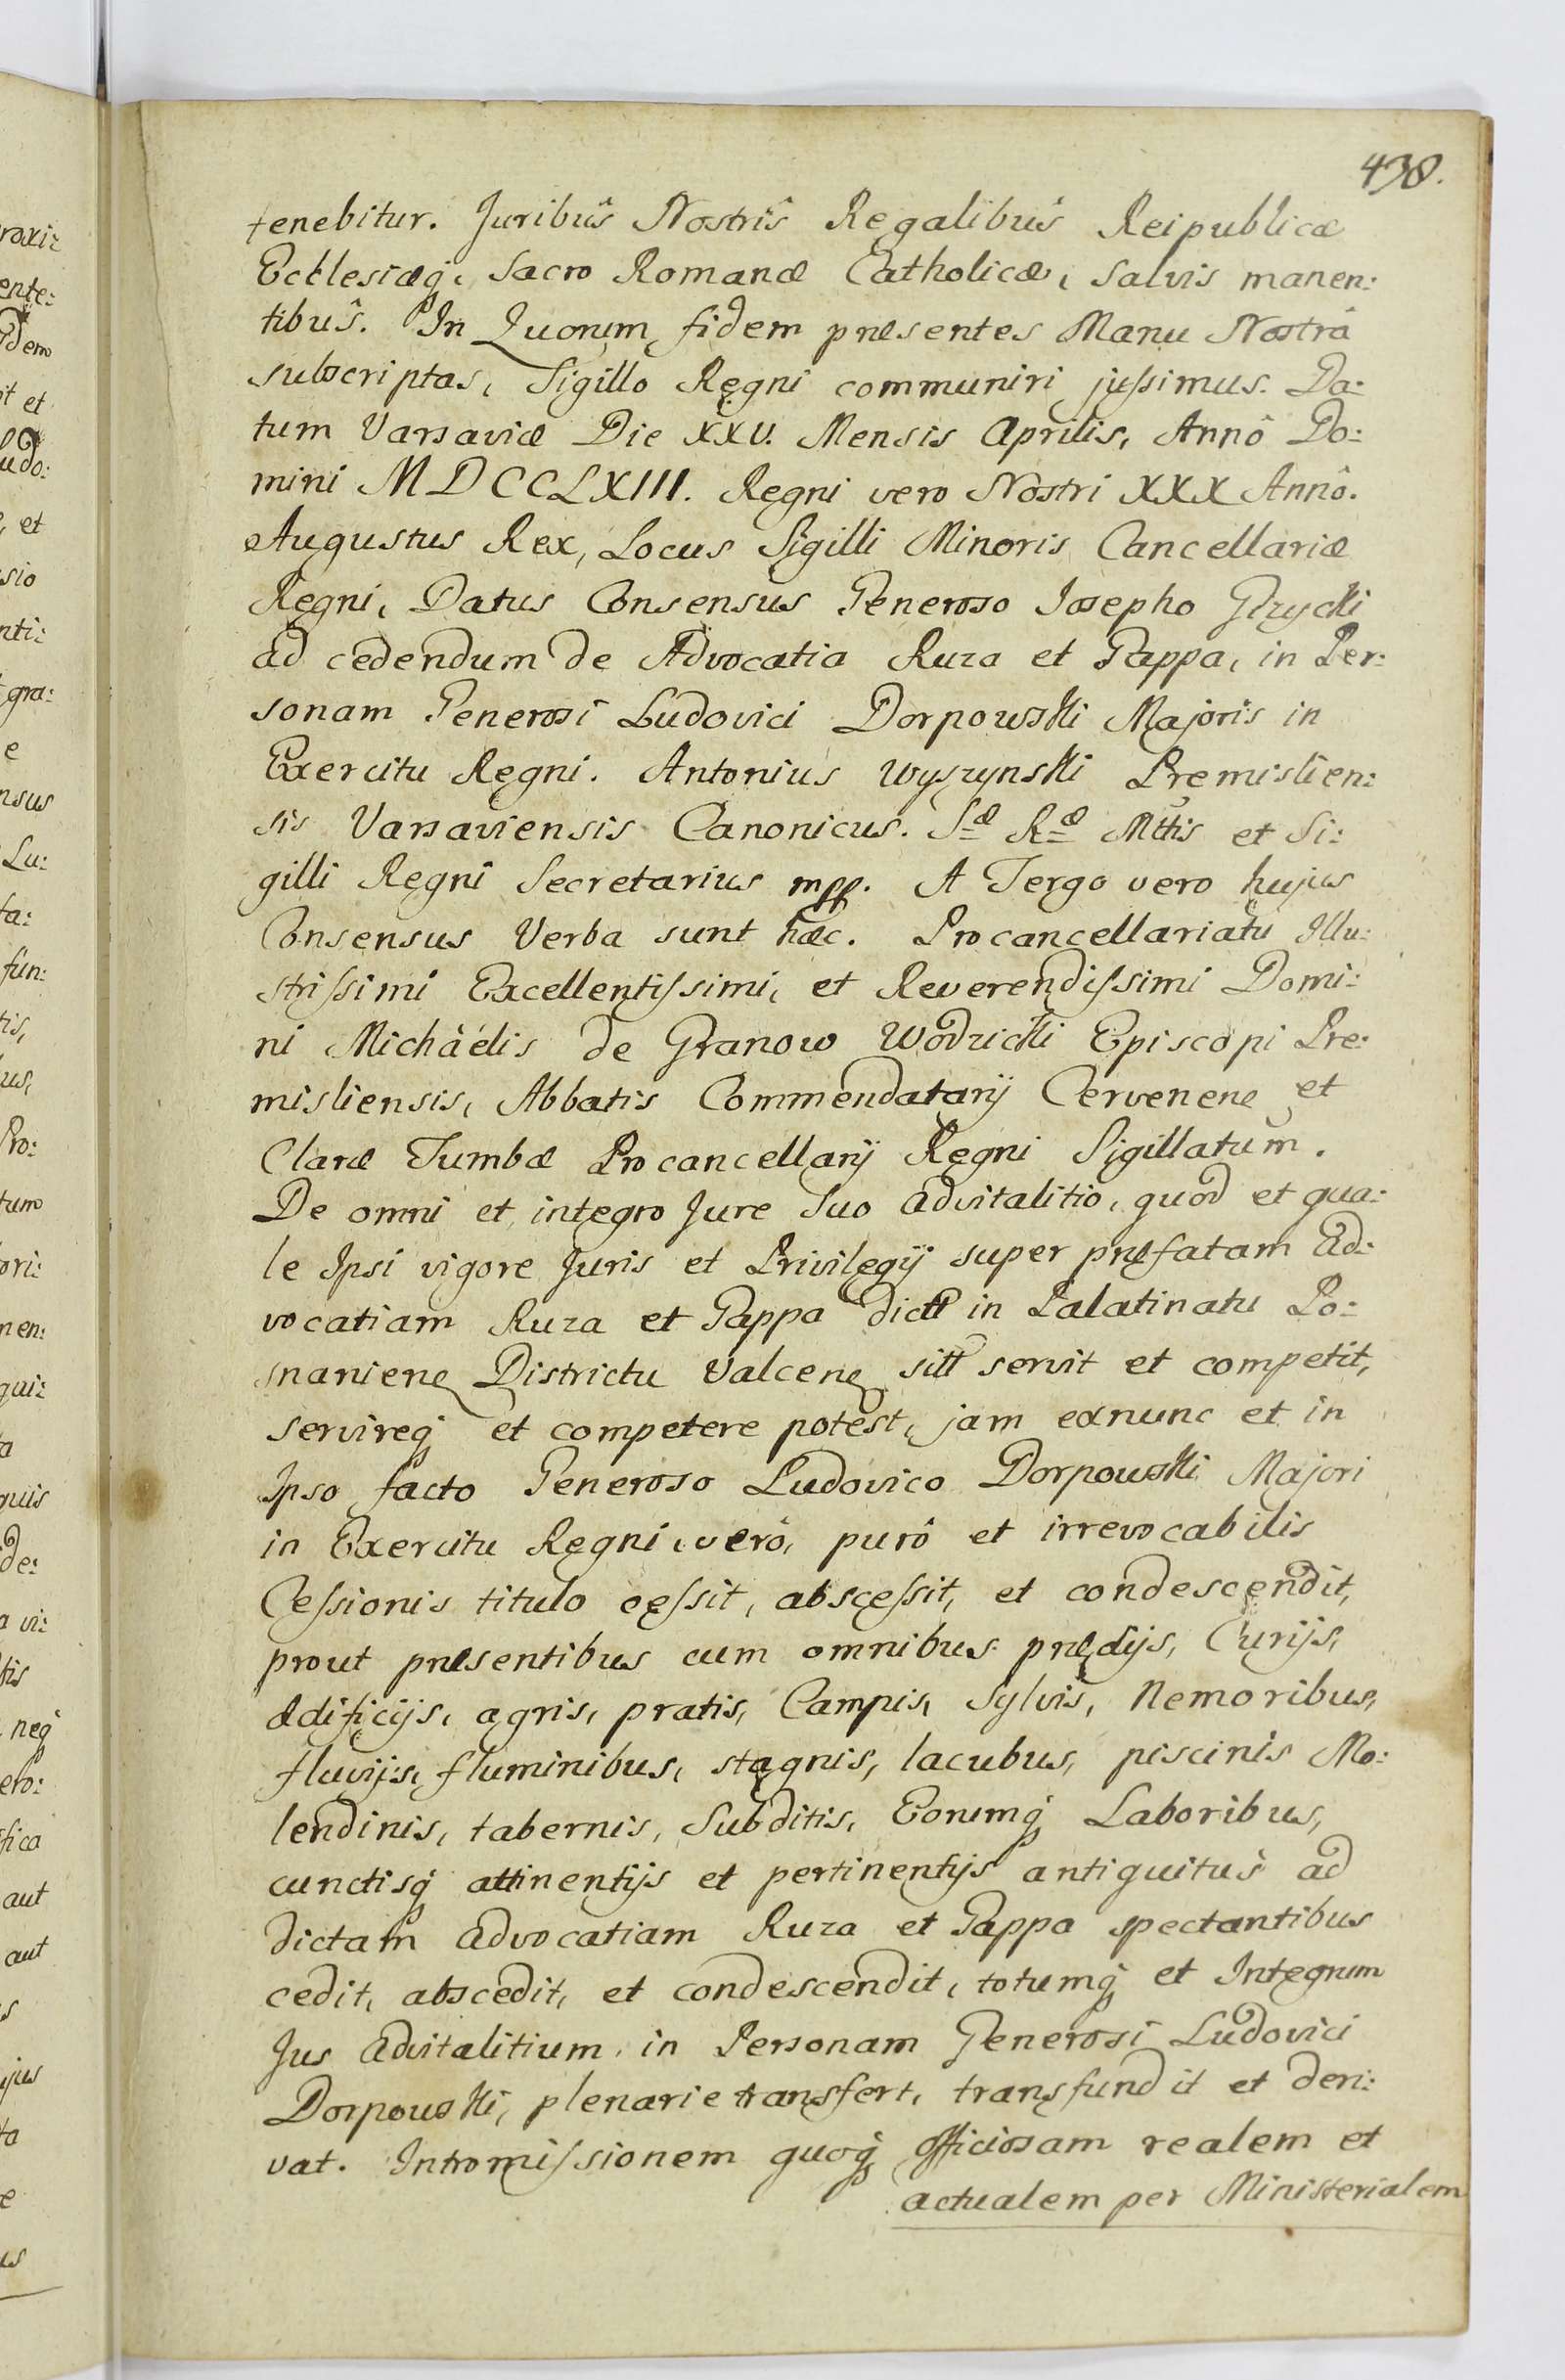 438.
tenebitur. Juribus Nostris Regalibus Reipublicæ
Ecclesiæq; Sacro Romanæ Catholicæ, Salvis manen:
tibus. In Quorum fidem præsentes Manu Nostrâ
subscriptas, Sigillo Regni communiri jussimus. Da:
tum Varsaviæ Die XXV. Mensis Aprilis, Annô Do:
mini MDCCLXIII. Regni vero Nostri XXX Annô.
Augustus Rex, Locus Sigilli Minoris Cancellariæ
Regni, Datus Consensus Generoso Josepho
ad cedendum de Advocatia Ruza et Pappa, in Per:
sonam Generosi Ludovici Dorpowski Majoris in
Exercitu Regni. Antonius Wyszynski Premislien:
sis Varsaviensis Canonicus. Sæ Ræ Mttis et Si:
gilli Regni Secretarius mpp. A Tergo vero hujus
Consensus Verba sunt hæc. Procancellariatu Illu:
strissimi Excellentissimi, et Reverendissimi Domi:
ni Michäelis de Granow Wodzicki Episcopi Pre:
misliensis, Abbatis Commendatarij Cervenene et
Claræ Tumbæ Procancellarij Regni Sigillatum.
De omni et integro Jure Suo advitalitio, quod et qua:
le Ipsi vigore Juris et Privilegij super præfatam Ad:
vocatiam Ruza et Pappa dictt in Palatinatu Po:
snaniene Districtu Valcene sitt servit et competit,
servireq; et competere potest, jam exnunc et in
Ipso facto Generoso Ludovico Dorpowski Majori
in Exercitu Regni, verô, purô et irrevocabilis
Cessionis titulo cessit, abscessit, et condescendit,
prout præsentibus cum omnibus prædijs, Curijs,
ædificijs, agris, pratis, Campis, Sylvis, Nemoribus,
fluvijs, fluminibus, stagnis, lacubus, piscinis Mo:
lendinis, tabernis, Subditis, Eorumq; Laboribus,
cunctisq; attinentijs et pertinentijs antiquitus ad
dictam advocatiam Ruza et Pappa spectantibus
cedit, abscedit, et condescendit, totumq; et Integrum
Jus advitalitium in Personam Generosi Ludovici
Dorpowski, plenarie transfert, transfundit et deri:
vat. Intromissionem quoq; officiosam realem et
actualem per Ministerialem